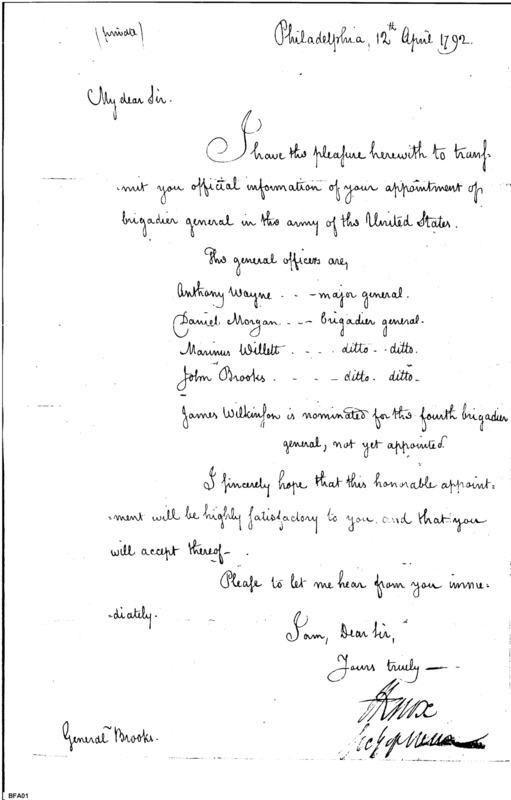 (private)
Philadelphia, 12th April 1792.
My dear Sir.
I have the pleasure herewith to trans=
=mit you official information of your appointment of
brigadier general in the army of the United States.
The general officers are,
Anthony Wayne . . - major general.
Daniel Morgan . - - brigadier general.
Marinus Willett . . . ditto - ditto.
John Brooks . - - - ditto. ditto -
James Wilkinson is nominated for the fourth brigadier
general, not yet appointed.
I sincerely hope that this honorable appoint=
=ment will be highly satisfactory to you and that you
will accept thereof - .
Please to let me hear from you imme=
=diately.
I am, Dear Sir,
Yours truely —
HKnox
General Brooks.
BFA01